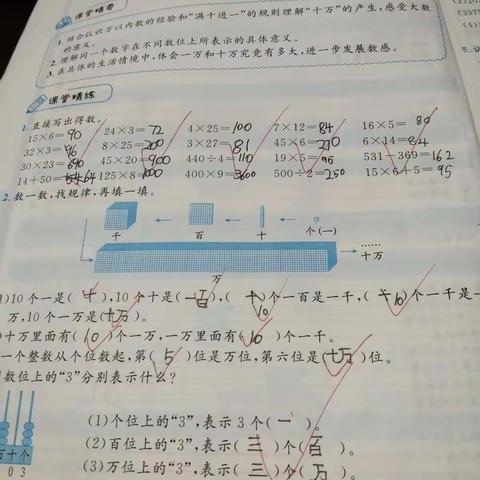 课堂精要
1. 结合认识万以内数的经验和“满十进一”的规则理解“十万”的产生,感受大数
的意义。
2. 理解同一个数字在不同数位上所表示的具体意义。
3. 在具体的生活情境中,体会一万和十万究竟有多大,进一步发展数感。
课堂精练
1. 直接写出得数。
15×6=90 24×3=72 4×25=100 7×12=84 16×5=80
32×3=96 8×25=200 3×27=81 45×6=270 6×14=84
30×23=690 45×20=900 440÷4=110 19×5=95 531-369=162
14+50=64 125×8=1000 400×9=3600 500÷2=250 15×6+5=95
2. 数一数,找规律,再填一填。
千 百 十 个(一)
万 十万 ……
)10个一是(十),10个十是(一百),(10)个一百是一千,(10)个一千是一
万,10个一万是(十万)。
)十万里面有(10)个一万,一万里面有(10)个一千。
一个整数从个位数起,第(5)位是万位,第六位是(十万)位。
数位上的“3”分别表示什么?
(1)个位上的“3”,表示3个(一)。
(2)百位上的“3”,表示(三)个(百)。
(3)万位上的“3”,表示(三)个(万)。
百十个
0 3